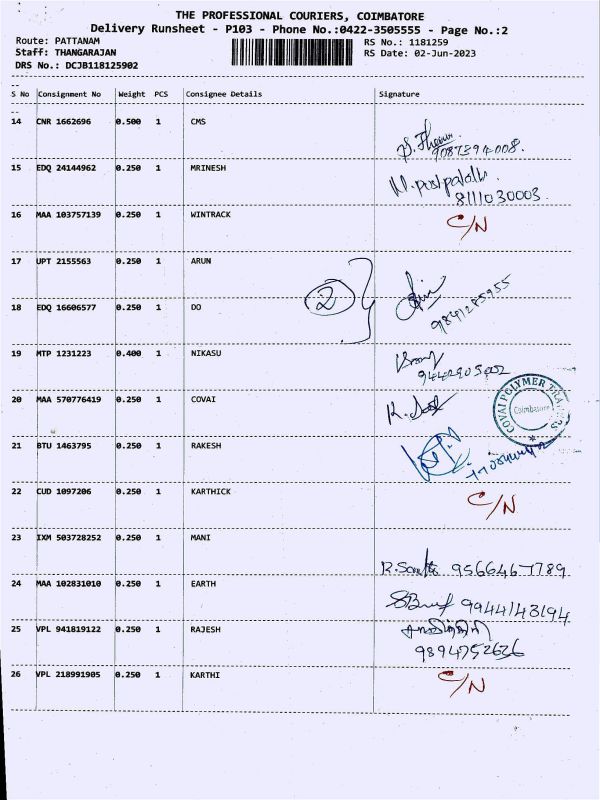 THE PROFESSIONAL COURIERS, COIMBATORE
Delivery Runsheet - P103 - Phone No.:0422-3505555 - Page No.:2
Route: PATTANAM
RS No.: 1181259
Staff: THANGARAJAN
RS Date: 02-Jun-2023
DRS No.: DCJB118125902
S No Consignment No Weight PCS Consignee Details Signature
14 CNR 1662696 0.500 1 CMS
9087394008.
15 EDQ 24144962 0.250 1 MRINESH
8111030003.
16 MAA 103757139 0.250 1 WINTRACK C/N
17 UPT 2155563 0.250 1 ARUN
2
18 EDQ 16606577 0.250 1 DO
19 MTP 1231223 0.400 1 NIKASU
20 MAA 570776419 0.250 1 COVAI
COVAI POLYMER
Coimbatore
21 BTU 1463795 0.250 1 RAKESH
22 CUD 1097206 0.250 1 KARTHICK C/N
23 IXM 503728252 0.250 1 MANI
9566467789
24 MAA 102831010 0.250 1 EARTH
9944143194
25 VPL 941819122 0.250 1 RAJESH
9894752636
26 VPL 218991905 0.250 1 KARTHI C/N